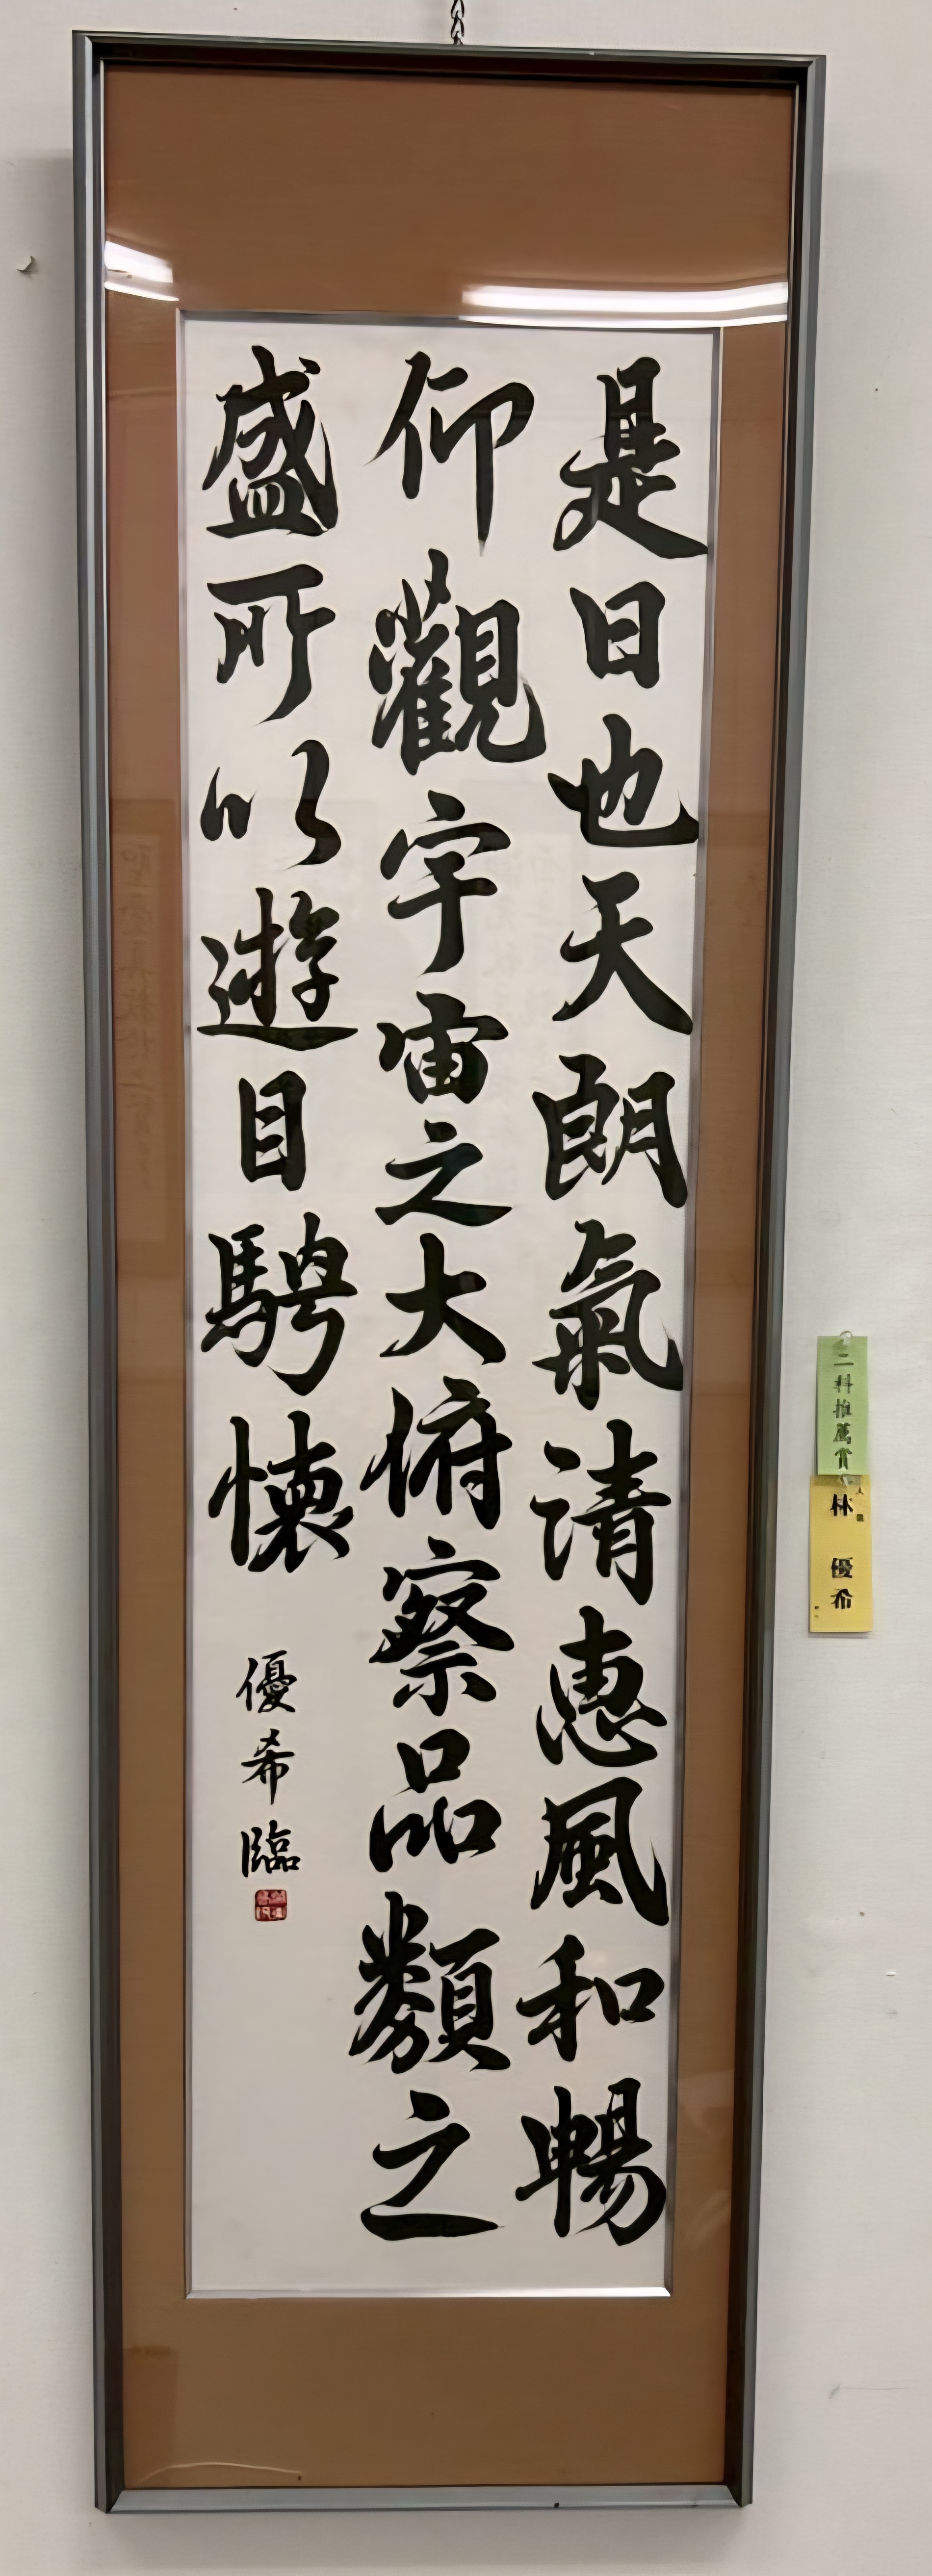 是日也天朗氣清惠風和暢
仰觀宇宙之大俯察品類之
盛所以遊目騁懷
優希臨
二科推薦賞
林 優希